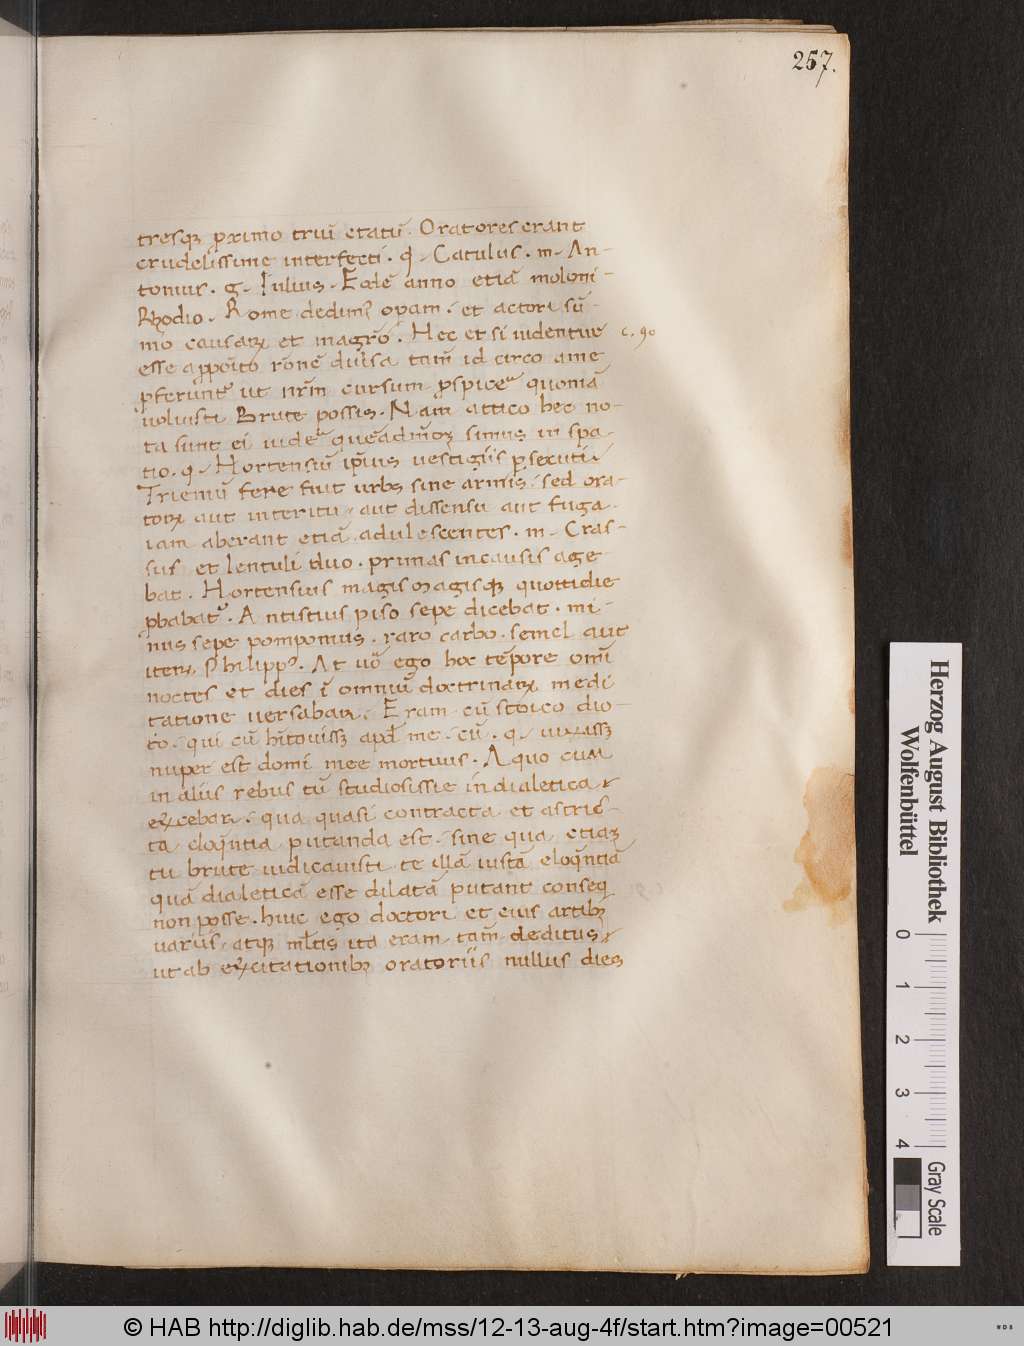 257.
tresqꝫ proximo triū etatū. Oratores erant
crudelissime interfecti. q̄. Catulus. m. An-
tonius. g. Iulius. Eodē anno etiā moloni
Rhodio. Rome dedim᷒ opam. et actori sū-
mo causaꝝ et magr̄o. Hec et si uidentur
c. 90
esse a ꝓposito rōne diuersa tam̄ id circo a me
ꝓferunt᷑ ut nr̄m cursum ꝑspicer̄ quoniā
uoluisti Brute possis. Nam attico hec no-
ta sunt ei uider̄ quēadm̄oꝝ simus in spa-
tio. q. Hortensiū ip̄ius uestigiis ꝑsecuti
Trieniū fere fuit urbs sine armis. sed ora-
toꝝ aut interitu, aut dissensu aut fuga.
iam aberant etiā adulescentes. m. Cras-
sus et lentuli duo. primas in causis age
bat. Hortensius magis magisqꝫ quottidie
ꝓbabat᷑. Antistius piso sepe dicebat. mi-
nus sepe pomponius. raro carbo. semel aut
iteꝝ Philipp᷒. At uō ego hoc tēpore omī
noctes et dies ī omniū doctrinaꝝ medi
tatione uersabaꝝ. Eram cū stoico dio-
to. qui cū hītauissꝫ apd̄ me. cū. q. uixissꝫ
nuper est domi mee mortuus. A quo cum
in aliis rebus tū studiosissie in dialetica
exꝫcebaꝝ. qua quasi contracta et astric-
ta eloqn̄tia putanda est. sine qua etiaꝫ
tu brute iudicauisti te illā iustā eloqn̄tiā
quā dialeticā esse dilatā putant conseq̄
non posse. huic ego doctori et eius artibꝫ
uariis, atqꝫ ml̄tis ita eram tam̄ deditus
ut ab exꝫcitationibꝫ oratoriis nullus dies
Herzog August Bibliothek
Wolfenbüttel
0 1 2 3 4
Gray Scale
© HAB http://diglib.hab.de/mss/12-13-aug-4f/start.htm?image=00521